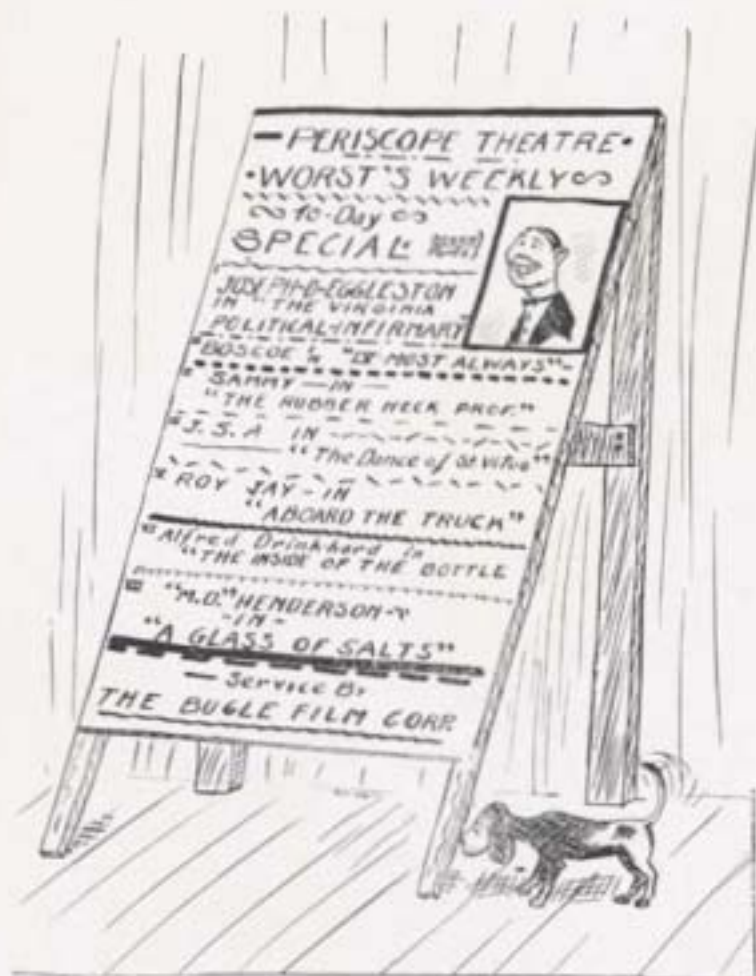 PERISCOPE THEATRE
WORST'S WEEKLY
To-Day
SPECIAL
JOSEPH-D-EGGLESTON
IN "THE VIRGINIA
POLITICAL-INFIRMARY"
BOSCOE IN "MOST ALWAYS"
SAMMY — IN —
"THE RUBBER NECK PROF."
J. S. A IN
"The Dance of St Vitus"
ROY JAY - IN
"ABOARD THE TRUCK"
Alfred Drinkhard in
"THE INSIDE OF THE BOTTLE
"M.D." HENDERSON
-IN-
"A GLASS OF SALTS"
Service By
THE BUGLE FILM CORP.